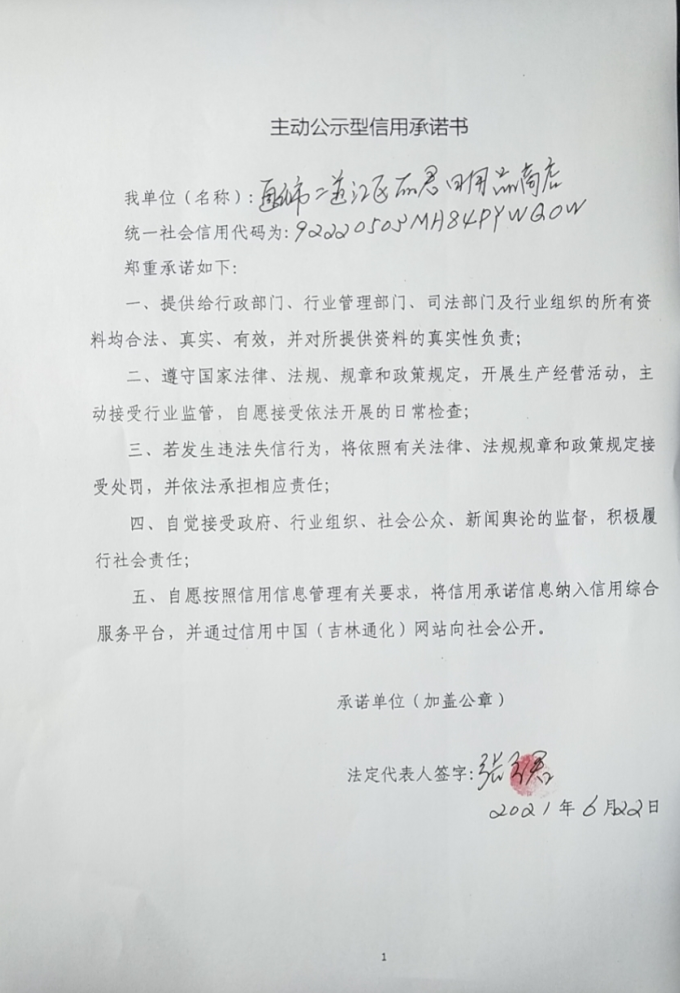 主动公示型信用承诺书
我单位（名称）：通化市二道江区丽君日用品商店
统一社会信用代码为：92220503MA84PYWQ0W
郑重承诺如下：
一、提供给行政部门、行业管理部门、司法部门及行业组织的所有资
料均合法、真实、有效，并对所提供资料的真实性负责；
二、遵守国家法律、法规、规章和政策规定，开展生产经营活动，主
动接受行业监管，自愿接受依法开展的日常检查；
三、若发生违法失信行为，将依照有关法律、法规规章和政策规定接
受处罚，并依法承担相应责任；
四、自觉接受政府、行业组织、社会公众、新闻舆论的监督，积极履
行社会责任；
五、自愿按照信用信息管理有关要求，将信用承诺信息纳入信用综合
服务平台，并通过信用中国（吉林通化）网站向社会公开。
承诺单位（加盖公章）
法定代表人签字：张君
2021年6月22日
1